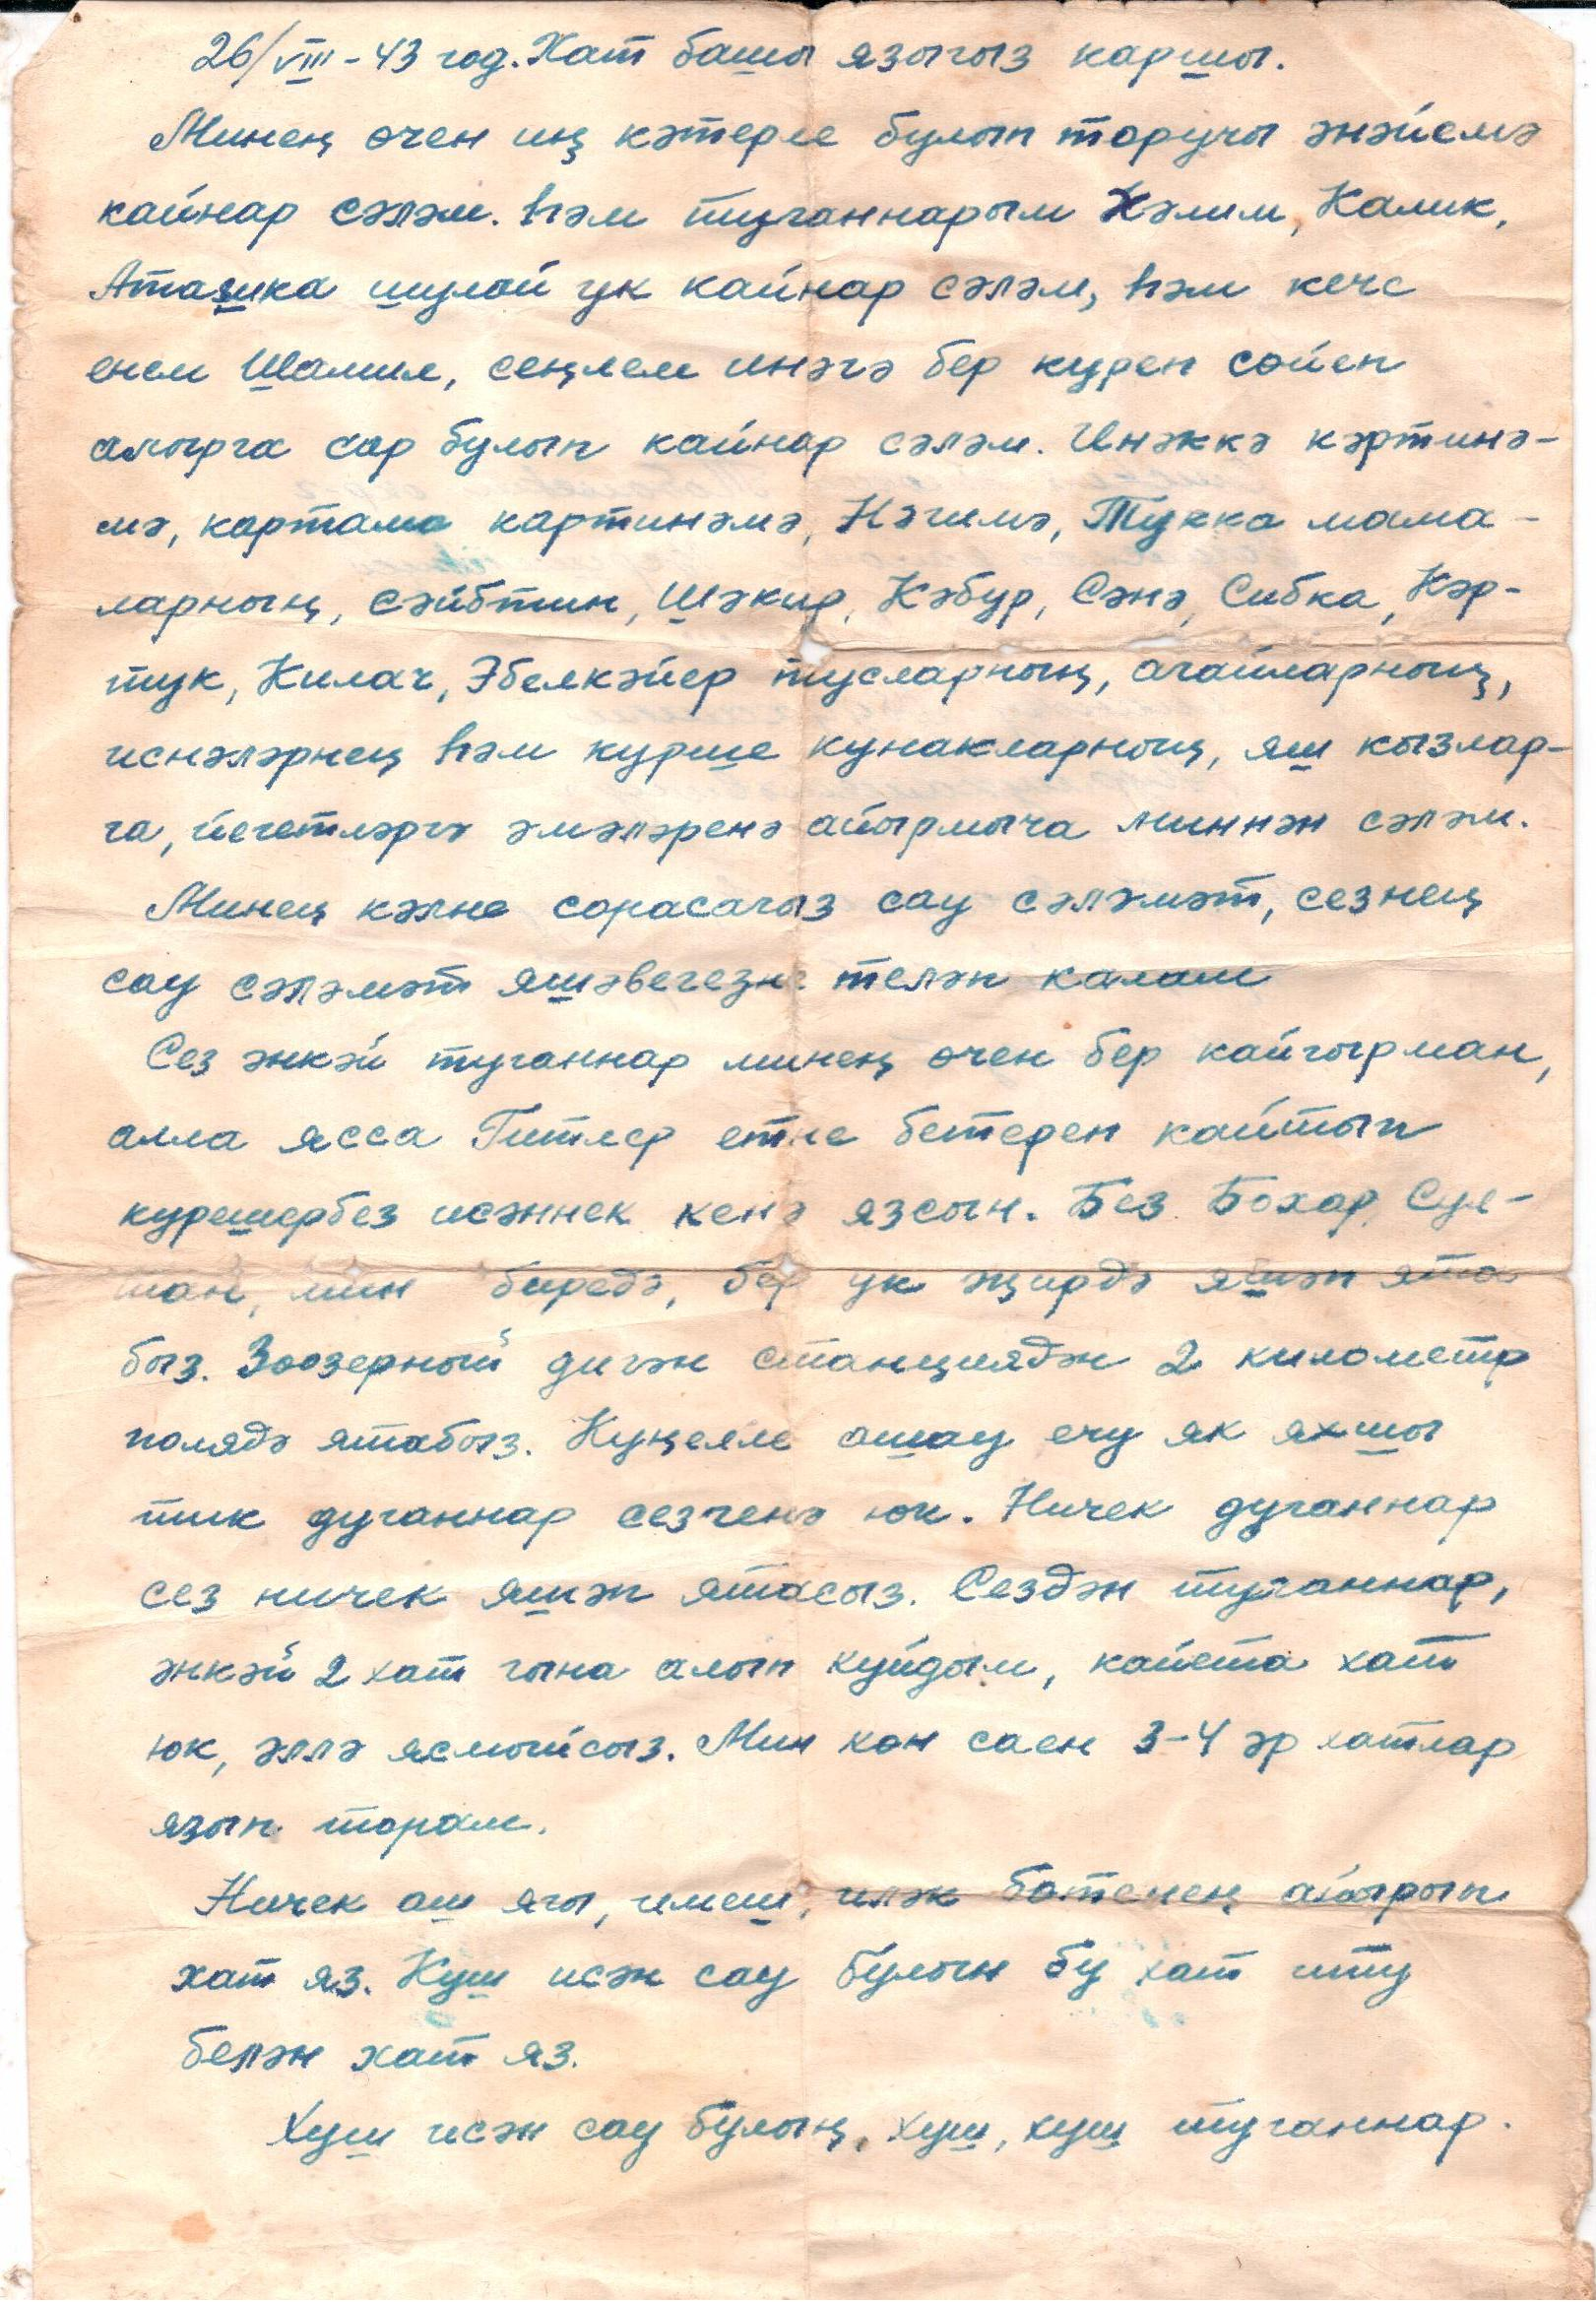 26/VIII-43 год. Хат башы языгыз каршы.
Минең өчен иң кәтерле булып торучы әнәйемә
кайнар сәләм. Һәм туганнарым Хәлим, Калик,
Аташка шулай ук кайнар сәләм, һәм кече
енем Шамил, сеңлем инәгә бер курен сөйен
алырга сар булып кайнар сәләм. Инәккә кәртинә-
мә, картама картинәмә, Нәгимә, Тукка мама-
ларның, Сәйбтин, Шәкир, Кәбур, Сәнә, Сибка, Кәр-
тук, Килач, Әбелкәйер тусларның, агайларның,
иснәләрнең һәм курше кунакларның, яш кызлар-
га, йегетләргә әмәләренә айырмыча миннән сәләм.
Минең кәлне сорасагыз сау сәләмәт, сезнең
сау сәләмәт яшәвегезне теләп калам
Сез әнкәй туганнар минең өчен бер кайгырман,
алла ясса Гитлер етне бетереп кайтып
курешербез исәннек кенә язсын. Без Бохар, Сул-
тан, мин биредә, бер ук җирдә яшәп ята
быз. Зоозерный дигән станциядән 2 километр
полядә ятабыз. Куңелле ашау ечу як яхшы
тик дуганнар сезгенә юк. Ничек дуганнар
сез ничек яшәп ятасыз. Сездән туганнар,
әнкәй 2 хат гына алып куйдым, кайета хат
юк, әллә ясмыйсыз. Мин көн саен 3-4 әр хатлар
язып торам.
Ничек аш ягы, имеш, иләк ботенең айырып
хат яз. Куш исән сау булын бу хат иту
белән хат яз.
Хуш исән сау булың, хуш, хуш туганнар.